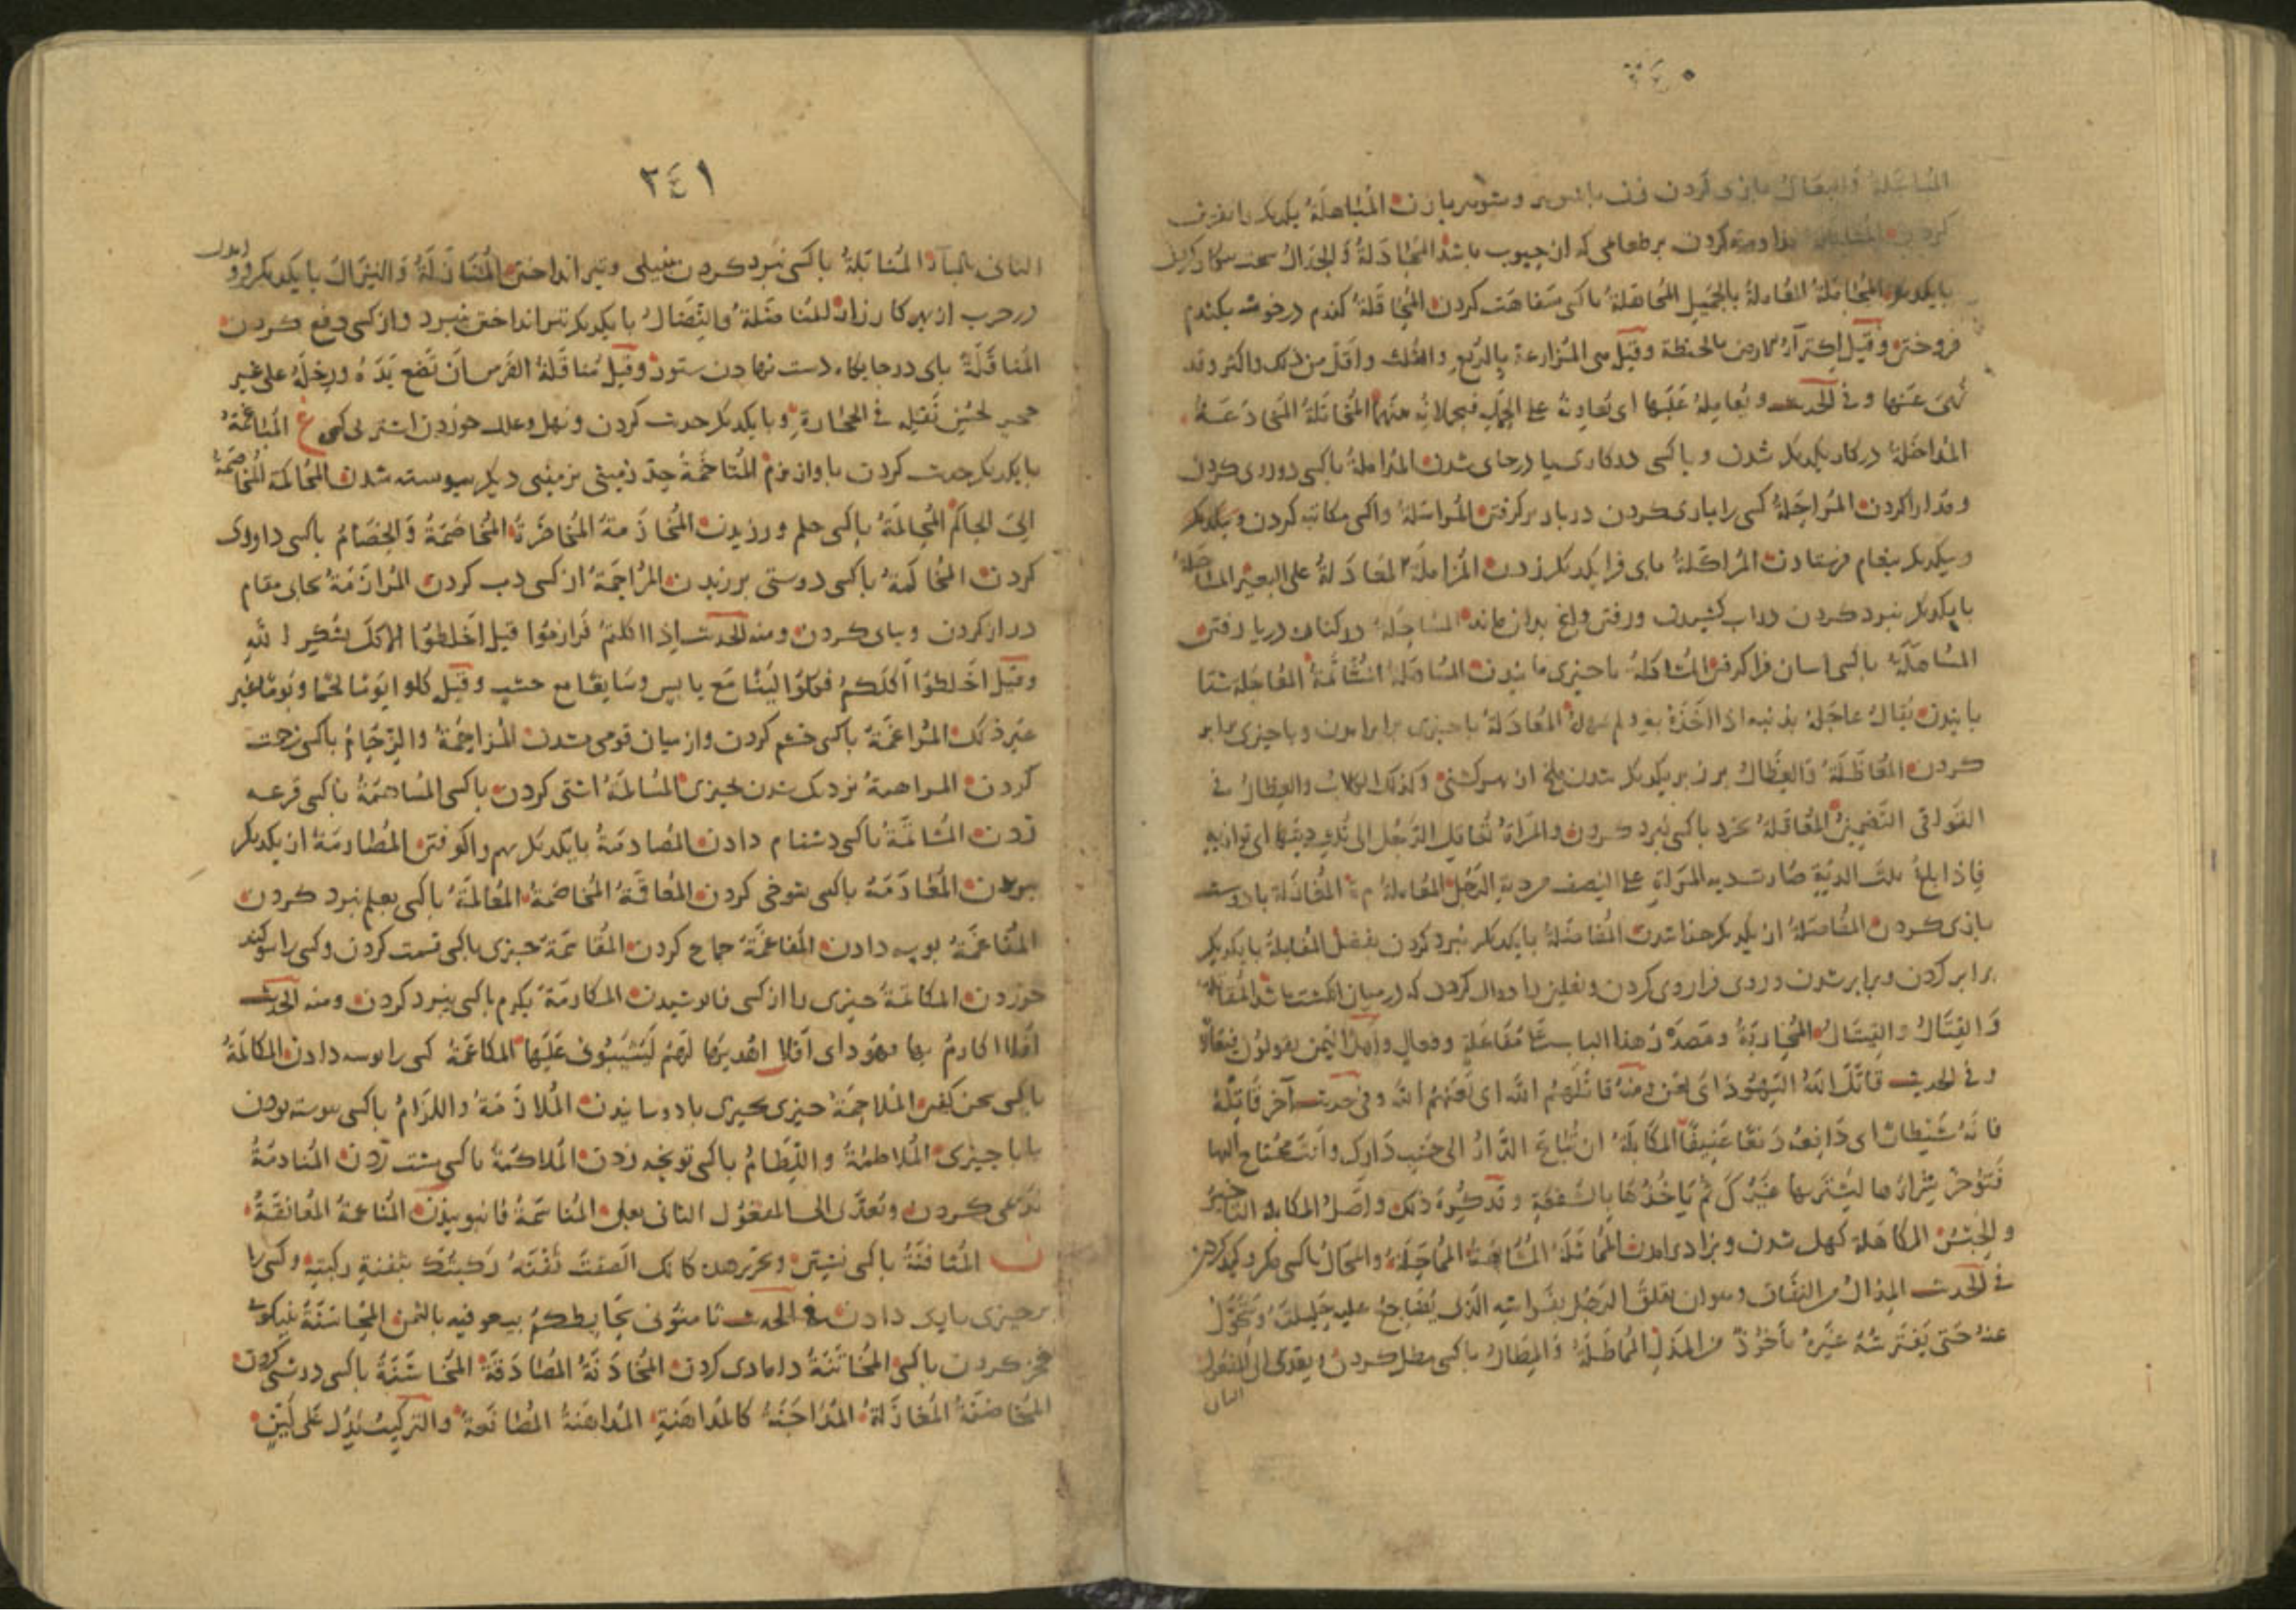 ٢٤٠
المباعلة والبعال بازی کردن زن باشوی و شوی با زن المباهلة یکدیکر را نفرین
کردن مداومت کردن بر طعامی که از حبوب باشد المجادلة والجدال سخت
المجاملة المعاملة بالجمیل المجاهلة با کسی سفاهت کردن المحاقلة کندم در خوشه بکندم
فروختن وقیل اکترآء الارض بالحنطة وقیل هی المزارعة بالربع والثلث واقل من ذلک واکثر وقد
نهی عنها وفی الحدیث المخاتلة المخادعة
المداخلة در کار یکدیکر شدن و با کسی در کاری یا در جای شدن المداملة با کسی
ومدارا کردن المراجلة کسی را یاری کردن در بار بر کرفتن المراسلة واکسی مکاتبه کردن
ویکدیکر پیغام فرستادن المراکلة پای فرا یکدیکر زدن المزاملة المعادلة علی البعیر المساجلة
با یکدیکر نبرد کردن در آب کشیدن ورفتن وانچ بدان ماند المساحلة در کنار دریا رفتن
المساهلة با کسی آسان فرا کرفتن المشاکلة با چیزی مانیدن المعاجلة شتا
بانیدن یقال عاجله بذنبه اذا اخذه به ولم یمهله المعادلة با چیزی برابر بودن وبا چیزی برابر
کردن المعاظلة والعظال بر زبر یکدیکر شدن ملخ وکذلک الکلاب والعظال فی
القوافی التضمین المعاقلة بخرد با کسی نبرد کردن والمرأة تعاقل الرجل الی ثلث دیتها ای توازیه
فاذا بلغ ثلث الدیة صارت دیة المرأة علی النصف من دیة الرجل المعاملة م المغازلة با دوست
بازی کردن المفاصلة از یکدیکر جدا شدن المفاضلة با یکدیکر نبرد کردن بفضل المقابلة با یکدیکر
برابر کردن وبرابر شدن وروی فرا روی کردن ونعلین را دوال کردن که در میان انکشت باشد المقاتلة
والقتال والقیتال المحاربة ومصدر هذا الباب مفاعلة وفعال واهل الیمن یقولون فیعال
وفی الحدیث قاتل الله الیهود ای لعن ومنه قاتلهم الله ای لعنهم الله وفی حدیث آخر قاتله
فانه شیطان ای دافعه دفعا عنیفا المکابلة ان تباع الدار الی جنب دارک وانت محتاج الیها
فتؤخر شراءها لیشتریها غیرک ثم یاخذها بالشفعة وقد کره ذلک واصل المکابلة التاخیر
والحبس المکاهلة کهل شدن المماثلة المشابهة المماحلة والمحال با کسی مکر وکید کردن
فی الحدیث المذال من النفاق وهو ان یقلق الرجل بفراشه الذی یضاجع علیه حلیلته ویتحول
عنه حتی یفترشه غیره ماخوذ من المذل المماطلة والمطال با کسی مطل کردن ویعدی الی المفعول
الثانی
٢٤١
الثانی بالبآء المنابلة با کسی نبرد کردن بنبیلی وتیر انداختن المنازلة والنزال با یکدیکر فرو آمدن
در حرب از بهر کارزار المناضلة والنضال با یکدیکر تیر انداختن بنبرد واز کسی دفع کردن
المناقلة پای در جایکاه دست نهادن ستور وقیل مناقلة الفرس ان تضع یده ورجله علی غیر
حجر لحسن نقله فی الحجارة وبا یکدیکر حدیث کردن ونهل وعلل خوردن اشتر م المباغمة
با یکدیکر حدیث کردن باواز نرم المتاخمة حد زمینی بزمینی دیکر پیوسته شدن المحاکمة المخاصمة
الی الحاکم المحالمة با کسی حلم ورزیدن المخاذمة المخاضرة المخاصمة والخصام با کسی داوری
کردن المخالمة با کسی دوستی برزیدن المراجمة از کسی ذب کردن المرازمة بجای مقام
دراز کردن وبیای کردن ومنه الحدیث اذا اکلتم فرازموا قیل اخلطوا الاکل بشکر الله
وقیل اخلطوا اکلکم فکلوا لینا مع یابس وسایغا مع جشب وقیل کلوا یوما لحما ویوما غیر
غیر ذلک المراغمة با کسی خشم کردن واز میان قومی شدن المزاحمة والزحام با کسی زحمت
کردن المزاهمة نزدیک شدن بچیزی المسالمة آشتی کردن با کسی المساهمة با کسی قرعه
زدن المشاتمة با کسی دشنام دادن المصادمة با یکدیکر بهم واکوفتن المصارمة از یکدیکر
بریدن المعارمة با کسی شوخی کردن المعاقمة المخاصمة المعالمة با کسی بعلم نبرد کردن
المفاغمة بوسه دادن المفاعمة جماع کردن المقاسمة چیزی با کسی قسمت کردن وکسی را سوکند
خوردن المکاتمة چیزی را از کسی فاپوشیدن المکارمة بکرم با کسی نبرد کردن ومنه الحدیث
افلا اکارم بها یهود ای افلا اهدیها لهم لیثیبونی علیها المکاعمة کسی را بوسه دادن المکالمة
با کسی سخن کفتن الملاحمة چیزی بچیزی بادوسانیدن الملازمة واللزام با کسی پیوسته بودن
یا با چیزی الملاطمة واللطام با کسی توپخه زدن الملاکمة با کسی مشت زدن المنادمة
ندیمی کردن وتعدی الی المفعول الثانی بعلی المناسمة فانبوییدن المناعمة المعانقة
ن المثافنة با کسی نشستن وتحریره کانک الصقت ثفنة رکبتک بثفنة رکبته وکسی را
بر چیزی یاری دادن فی الحدیث ثامنونی بحایطکم بیعونیه بالثمن المحاسنة بنیکوی
فخر کردن با کسی المخاتنة دامادی کردن المخادنة المصادقة المخاشنة با کسی درشتی کردن
المخاضنة المغازلة المداجنة کالمداهنة المداهنة المصانعة والترکیب یدل علی لین